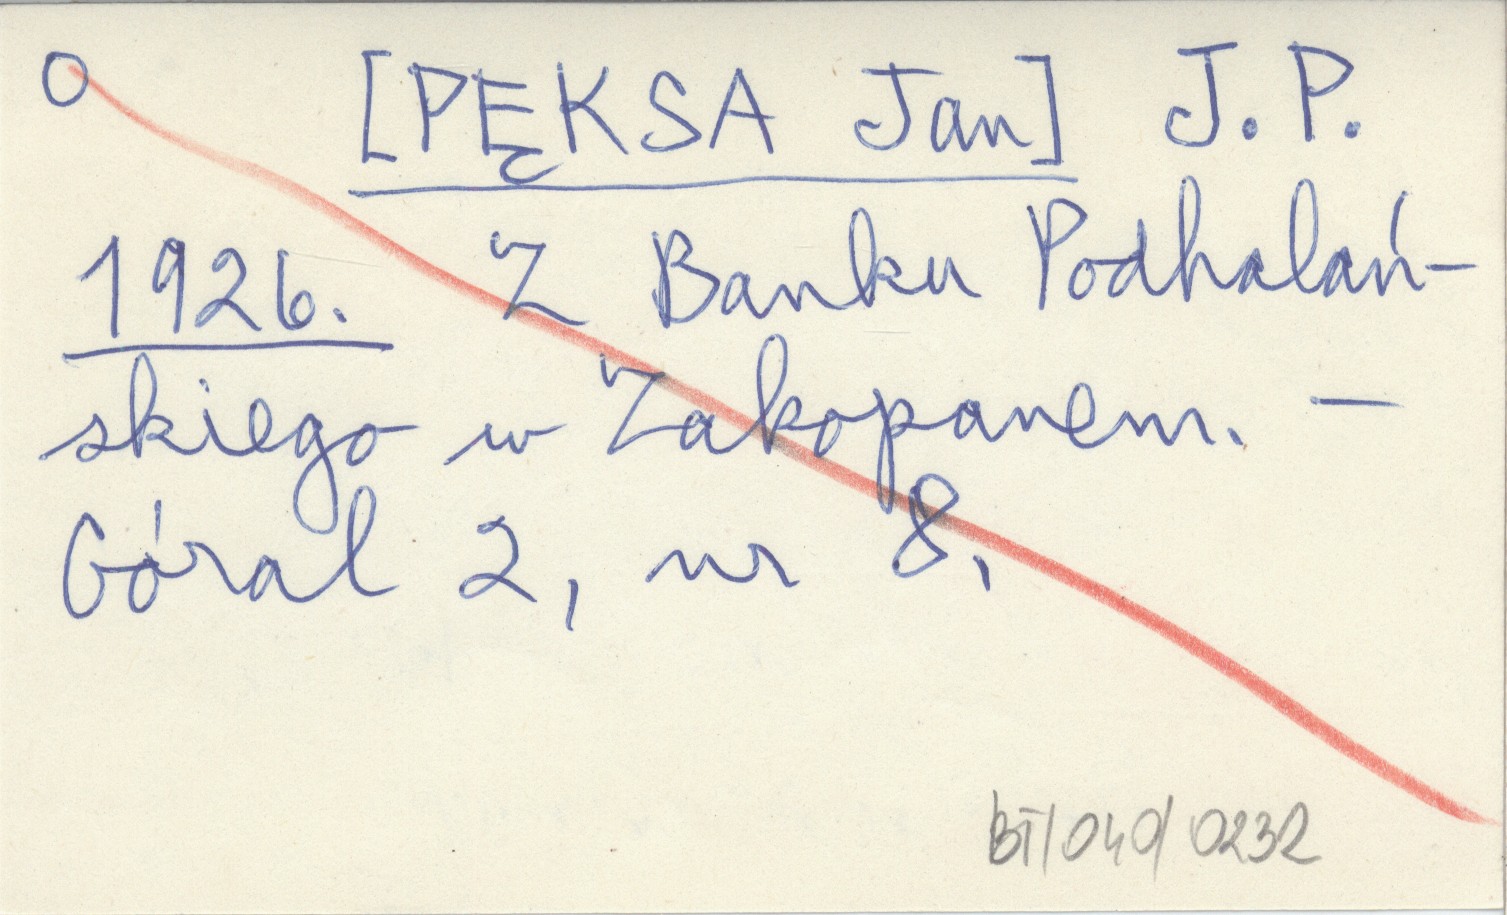 O [PĘKSA Jan] J. P.
1926. Z Banku Podhalań-
skiego w Zakopanem. —
Góral 2, nr 8,
BT/040/0232